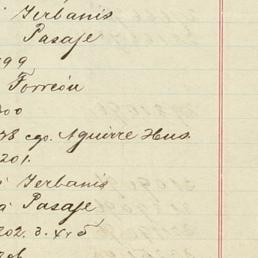 Terbanis
Pasaje
99
Torreón
00
78 cgo. Aguirre Hns.
201.
á Terbanis
á Pasaje
202. d. x. 5